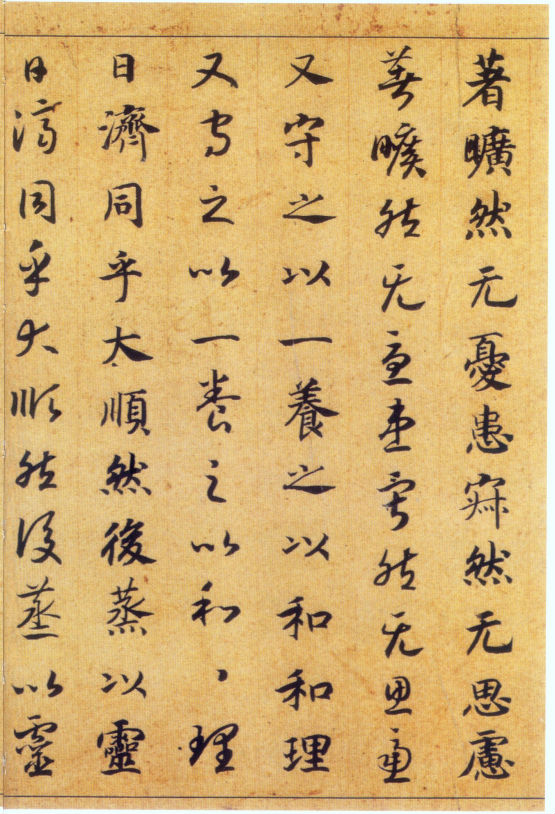 著曠然无憂患寂然无思慮
著曠然无憂患寂然无思慮
又守之以一養之以和和理
又守之以一養之以和、理
日濟同乎太順然後蒸以靈
日濟同乎大順然後蒸以靈